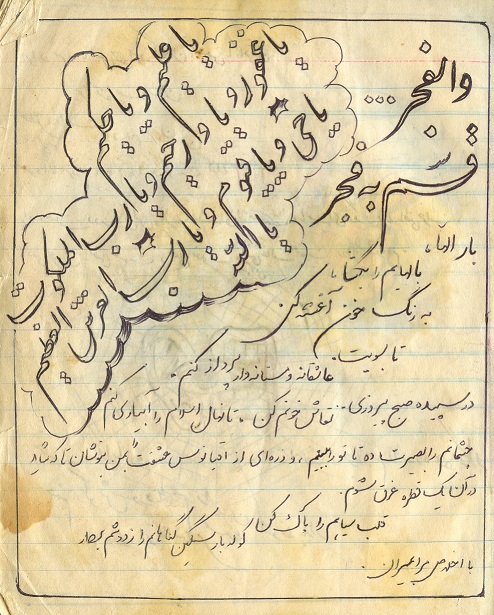 والفجر...
قسم به فجر
یا غفور و یا علیم و یا حلیم
یا حی و یا قیوم و یا رحیم و یا
یا الله یا رب
العرش العظیم
بار الها،
بالهایم را بگشا،
به رنگ خون آغشته کن
تا بسویت.
عاشقانه و مستانه وار پرواز کنم.
در سپیده صبح پیروزی... خونم کن، تا نهال اسلام را آبیاری کنم
چشمانم را بصیرت ده تا تو را ببینم، و ذره‌ای از اقیانوس عشقت بمن بنوشان تا
در آن یک قطره غرق شوم.
قلب سیاهم را پاک کن
کوله بار سنگین گناهانم را از دوشم بردار
با اخلاص مرا بمیران.